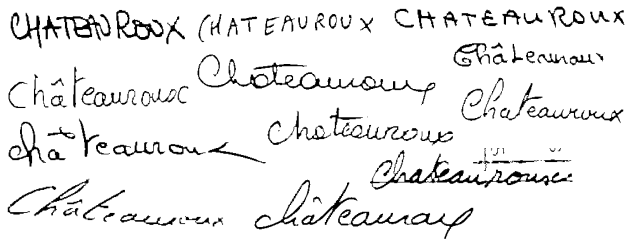 CHATEAUROUX CHATEAUROUX CHATEAUROUX
Châteauroux
Châteauroux Chateauroux
Chateauroux
Chateauroux
châteauroux
Chateauroux
Châteauroux châteauroux